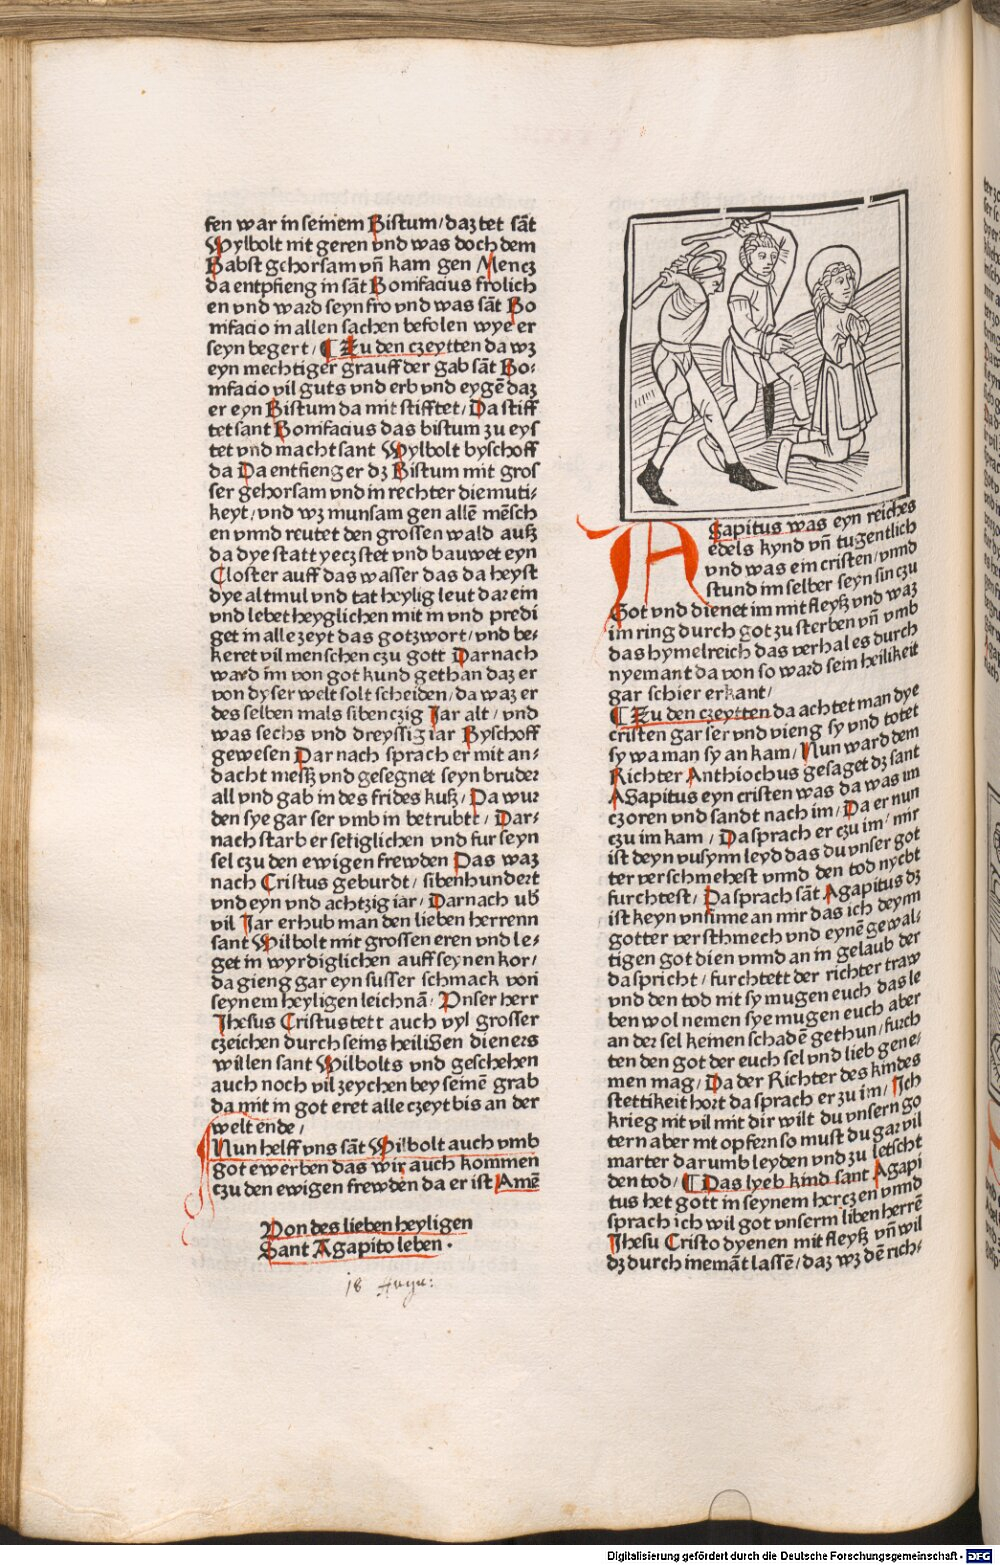 fen war in seinem Bistum/ daz tet sāt
Wylbolt nit geren vnd was doch dem
Babst gehorsam vn̄ kam gen Mencz
da entpfieng in sāt Bonifacius frolich
en vnd ward seyn fro vnd was sāt Bo
nifacio in allen sachen befolen wye er
seyn begert/ Zu den czeytten da wz
eyn mechtiger grauff der gab sāt Bo⸗
nifacio vil guts vnd erb vnd eygē daz
er eyn Bistum da mit stifftet/ Da stiff
tet sant Bonifacius das bistum zu eys
tet vnd macht sant Wylbolt byschoff
da Da entfieng er dz Bistum mit gros
ser gehorsam vnd in rechter diemuti⸗
keyt/ vnd wz munsam gen allē mēsch
en vnnd reutet den grossen wald ausz
da dye statt yecz stet vnd bauwet eyn
Closter auff das wasser das da heyst
dye altmul vnd tat heylig leut dar ein
vnd lebet heyglichen mit in vnd predi
get in alle zeyt das gotzwort/ vnd be⸗
keret vil menschen czu gott Dar nach
ward im von got kund gethan daz er
von dyser welt solt scheiden/ da waz er
des selben mals sibenczig Jar alt/ vnd
was sechs vnd dreyssig iar Byschoff
gewesen Dar nach sprach er mit an⸗
dacht messz vnd gesegnet seyn bruder
all vnd gab in des frides kusz/ Da wur
den sye gar ser vmb in betrubtt/ Dar⸗
nach starb er setiglichen vnd fur seyn
sel czu den ewigen frewden Das waz
nach Cristus geburdt/ sibenhundert
vnd eyn vnd achtzig iar/ Darnach ub̄
vil Jar erhub man den lieben herrenn
sant Wilbolt mit grossen eren vnd le⸗
get in wyrdiglichen auff seynen kor/
da gieng gar eyn susser schmack von
seynem heyligen leichnā/ Vnser herr
Jhesus Cristus tett auch vyl grosser
czeichen durch seins heiligen dieners
willen sant Wilbolts vnd geschehen
auch noch vil zeychen bey seinē grab
da mit in got eret alle czeyt bis an der
welt ende/
Nun helff vns sāt Wilbolt auch vmb
got ewerben das wir auch kommen
czu den ewigen frewden da er ist Amē
Von des lieben heyligen
Sant Agapito leben.
18 Augu:
Agapitus was eyn reiches
edels kynd vn̄ tugentlich
vnd was ein cristen/ vnnd
stund im selber seyn sin czu
Got vnd dienet im mit fleysz vnd waz
im ring durch got zu sterben vn̄ vmb
das hymelreich das verhal es durch
nyemant da von so ward sein heilikeit
gar schier erkant/
Zu den czeytten da achtet man dye
cristen gar ser vnd vieng sy vnd totet
sy wa man sy an kam/ Nun ward dem
Richter Anthiochus gesaget dz sant
Agapitus eyn cristen was da was im
czoren vnd sandt nach im/ Da er nun
czu im kam/ Da sprach er czu im/ mir
ist deyn vusynn leyd das du vnser got
ter verschmehest vnnd den tod nycht
furchtest/ Da sprach sāt Agapitus dz
ist keyn vnsinne an mir das ich deyni
gotter versthmech vnd eynē gewal⸗
tigen got dien vnnd an in gelaub der
da spricht/ furchtett der richter traw
vnd den tod nit sy mugen euch das le
ben wol nemen sye mugen euch aber
an der sel keinen schadē gethun/ furch
ten den got der euch sel vnd lieb gene/
men mag/ Da der Richter des kindes
stettikeit hort da sprach er zu im/ Jch
krieg mit vil mit dir wilt du vnsern go
tern aber mt opfern so must du gar vil
marter darumb leyden vnd zu letscht
den tod/ Das lyeb kind sant Agapi
tus het gott in seynem herczen vnnd
sprach ich wil got vnserm liben herrē
Jhesu Cristo dyenen mit fleysz vn̄ wil
dz durch niemāt lassē/ daz wz dē rich⸗
Digitalisierung gefördert durch die Deutsche Forschungsgemeinschaft - DFG